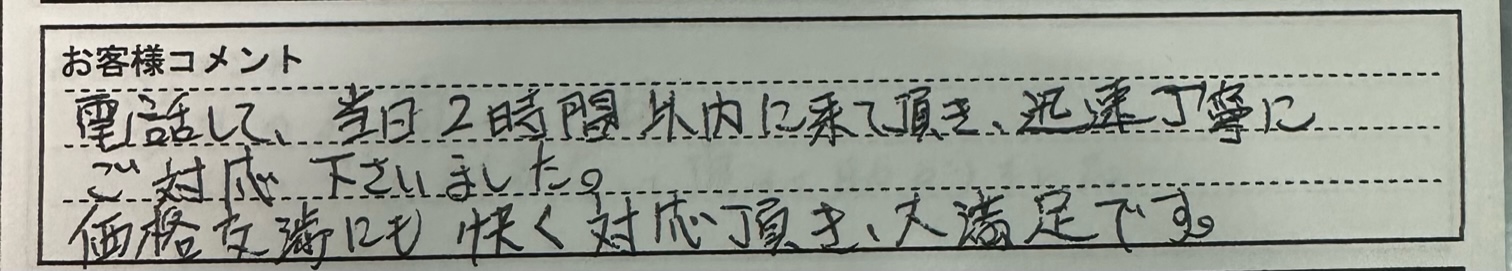 お客様コメント
電話して、当日2時間以内に来て頂き、迅速丁寧に
ご対応下さいました。
価格交渉にも快く対応頂き、大満足です。